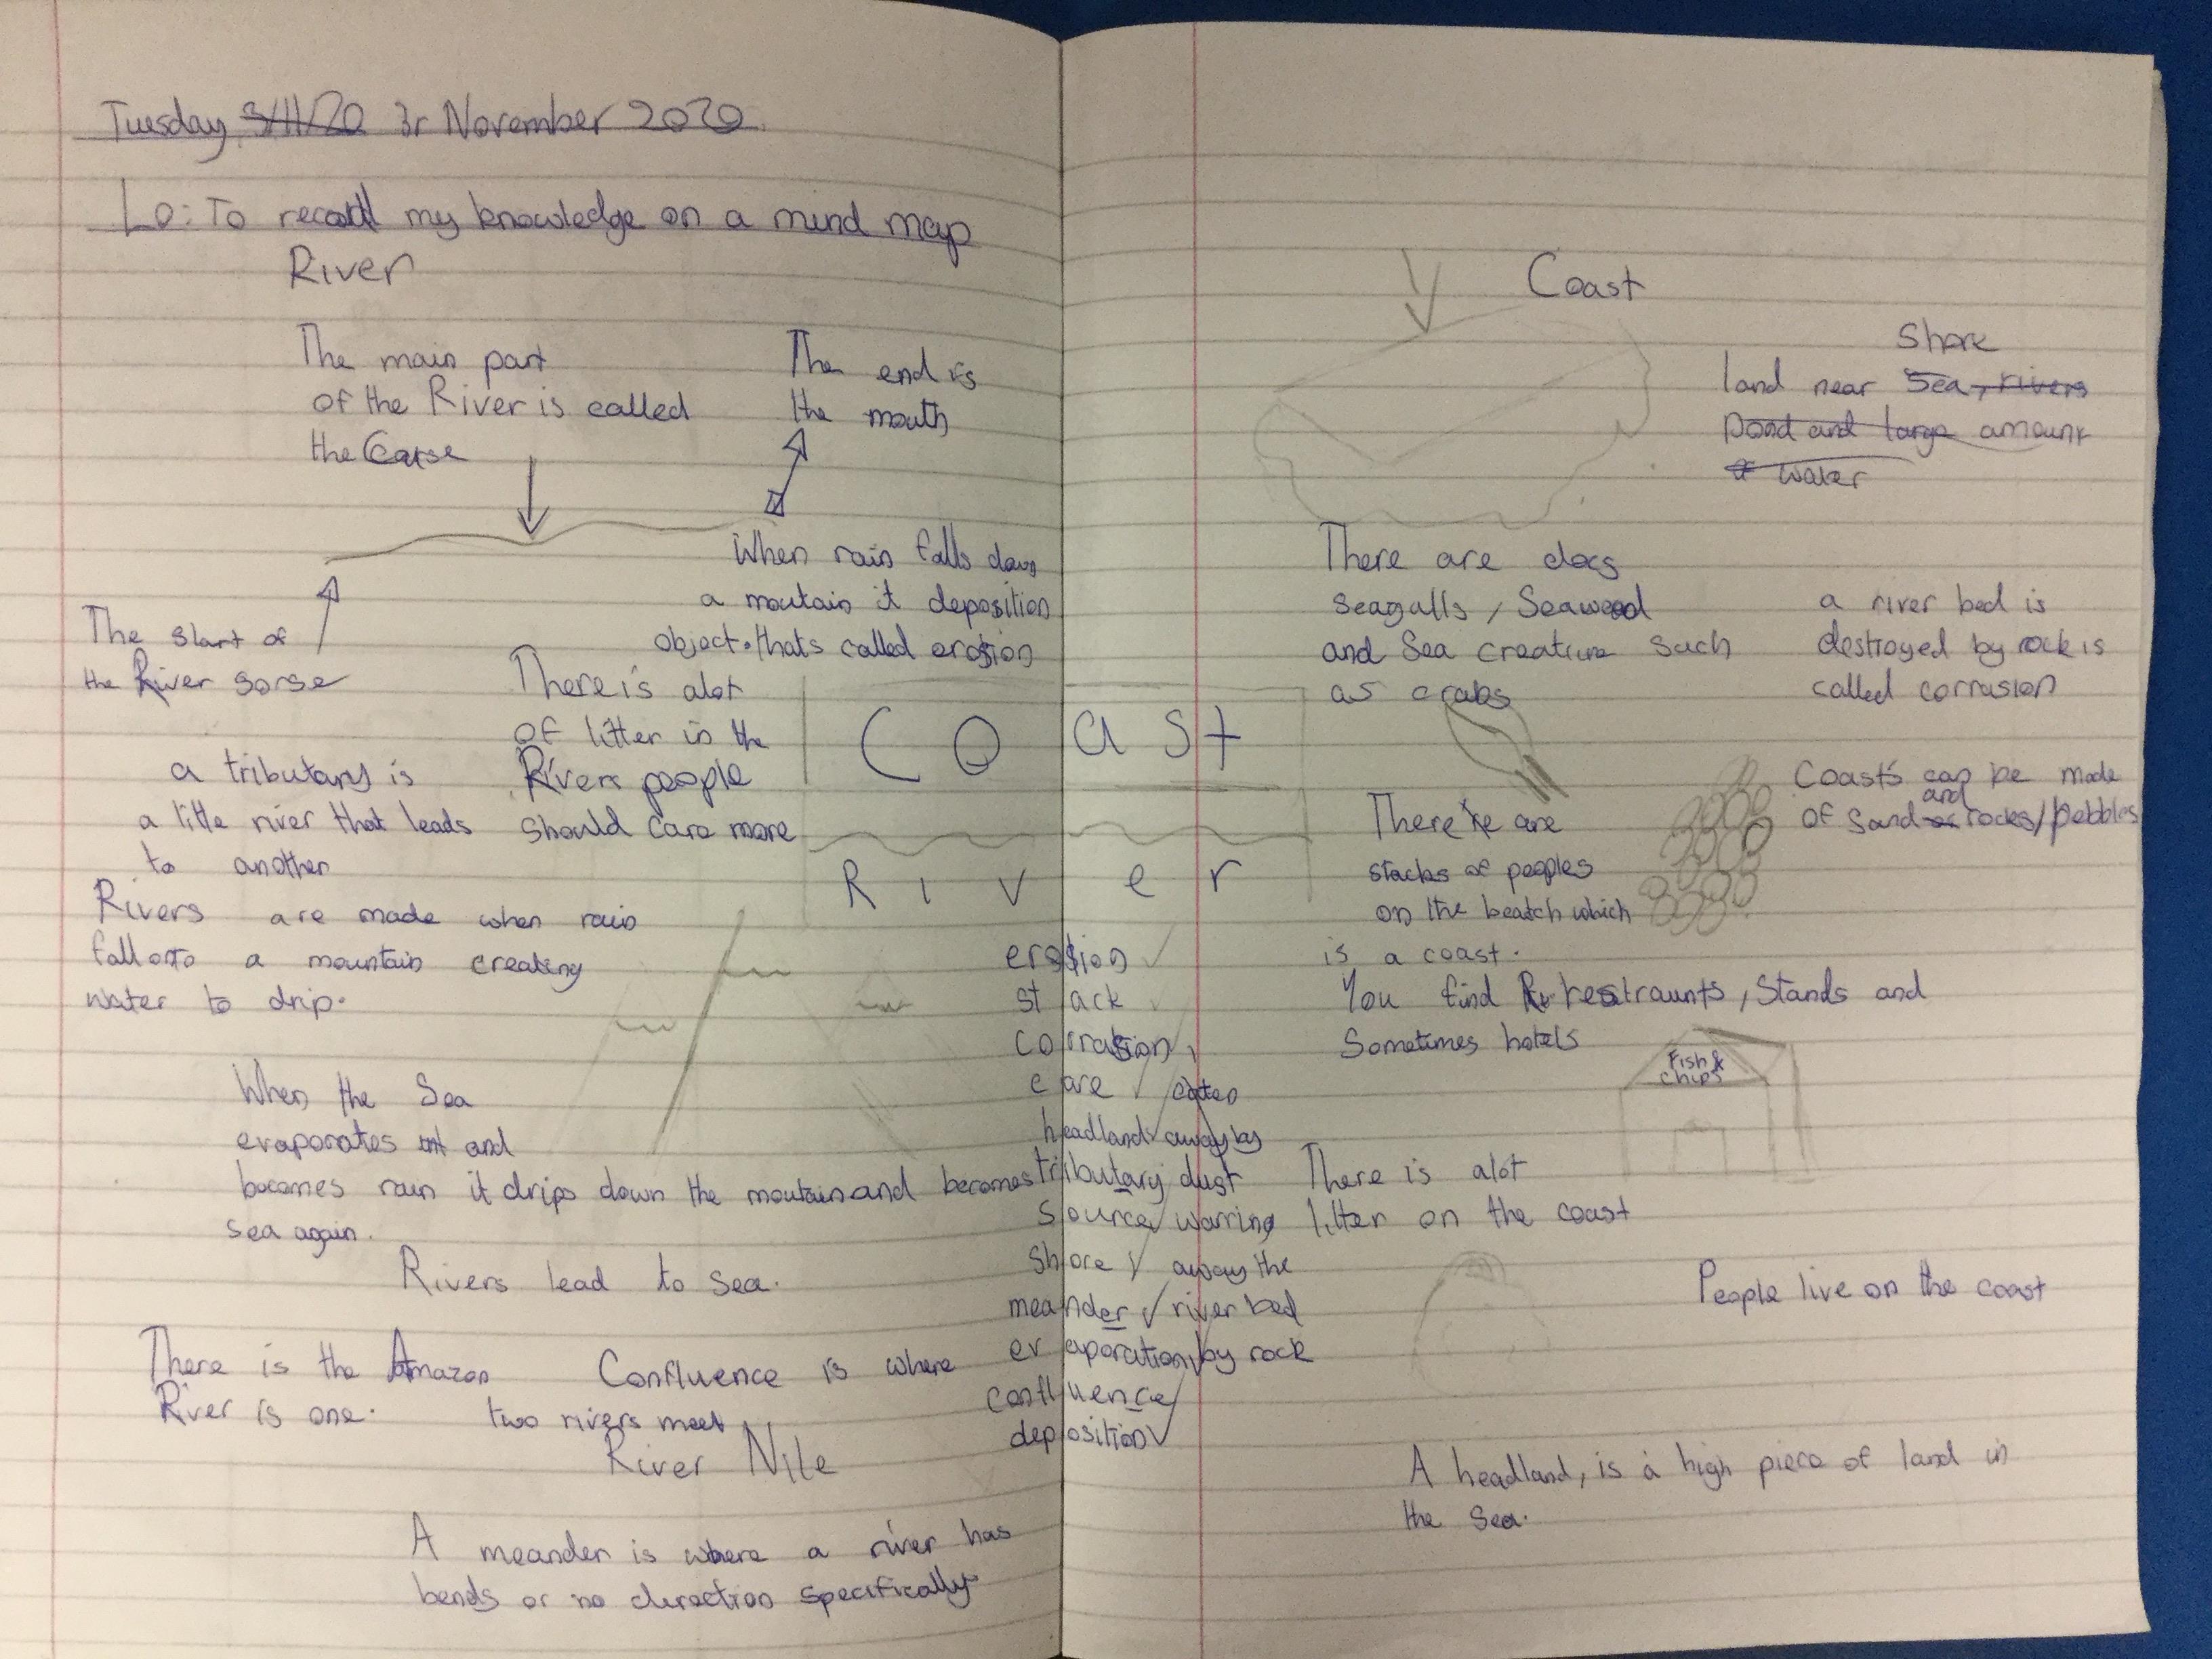 Tuesday 3/11/20 3r November 2020.
Lo: To record my knowledge on a mind map
River
The main part
of the River is called
the Carse
The end is
the mouth
When rain falls down
a moutain it deposition
object. thats called erosion
The start of
the River sorse
There is alot
of litter in the
Rivers people
should care more
a tributary is
a litte river that leads
to another
Rivers are made when rain
fall onto a mountain creating
water to drip.
When the Sea
evaporates and
becomes rain it drips down the moutain and becomes
sea again.
Rivers lead to sea.
There is the Amazon
River is one.
Confluence is where
two rivers meet
River Nile
A meander is where a river has
bends or no direction specifically
Coast
River
erosion
stack
corrasion
eare
headland
tributary
source
shore
meander
evaporation
confluence
deposition
eaten
away by
dust
warring
away the
river bed
by rock
Coast
Shore
land near Sea, rivers
pond and large amount
of water
There are docs
seagalls, Seaweed
and Sea creature such
as crabs
a river bed is
destroyed by rock is
called corrasion
Coasts can be made
and
of sand or rocks/pebbles
There are
stacks of peoples
on the beatch which
is a coast.
You find restraunts, Stands and
Sometimes hotels
Fish &
chips
There is alot
litter on the coast
People live on the coast
A headland, is a high piece of land in
the Sea.